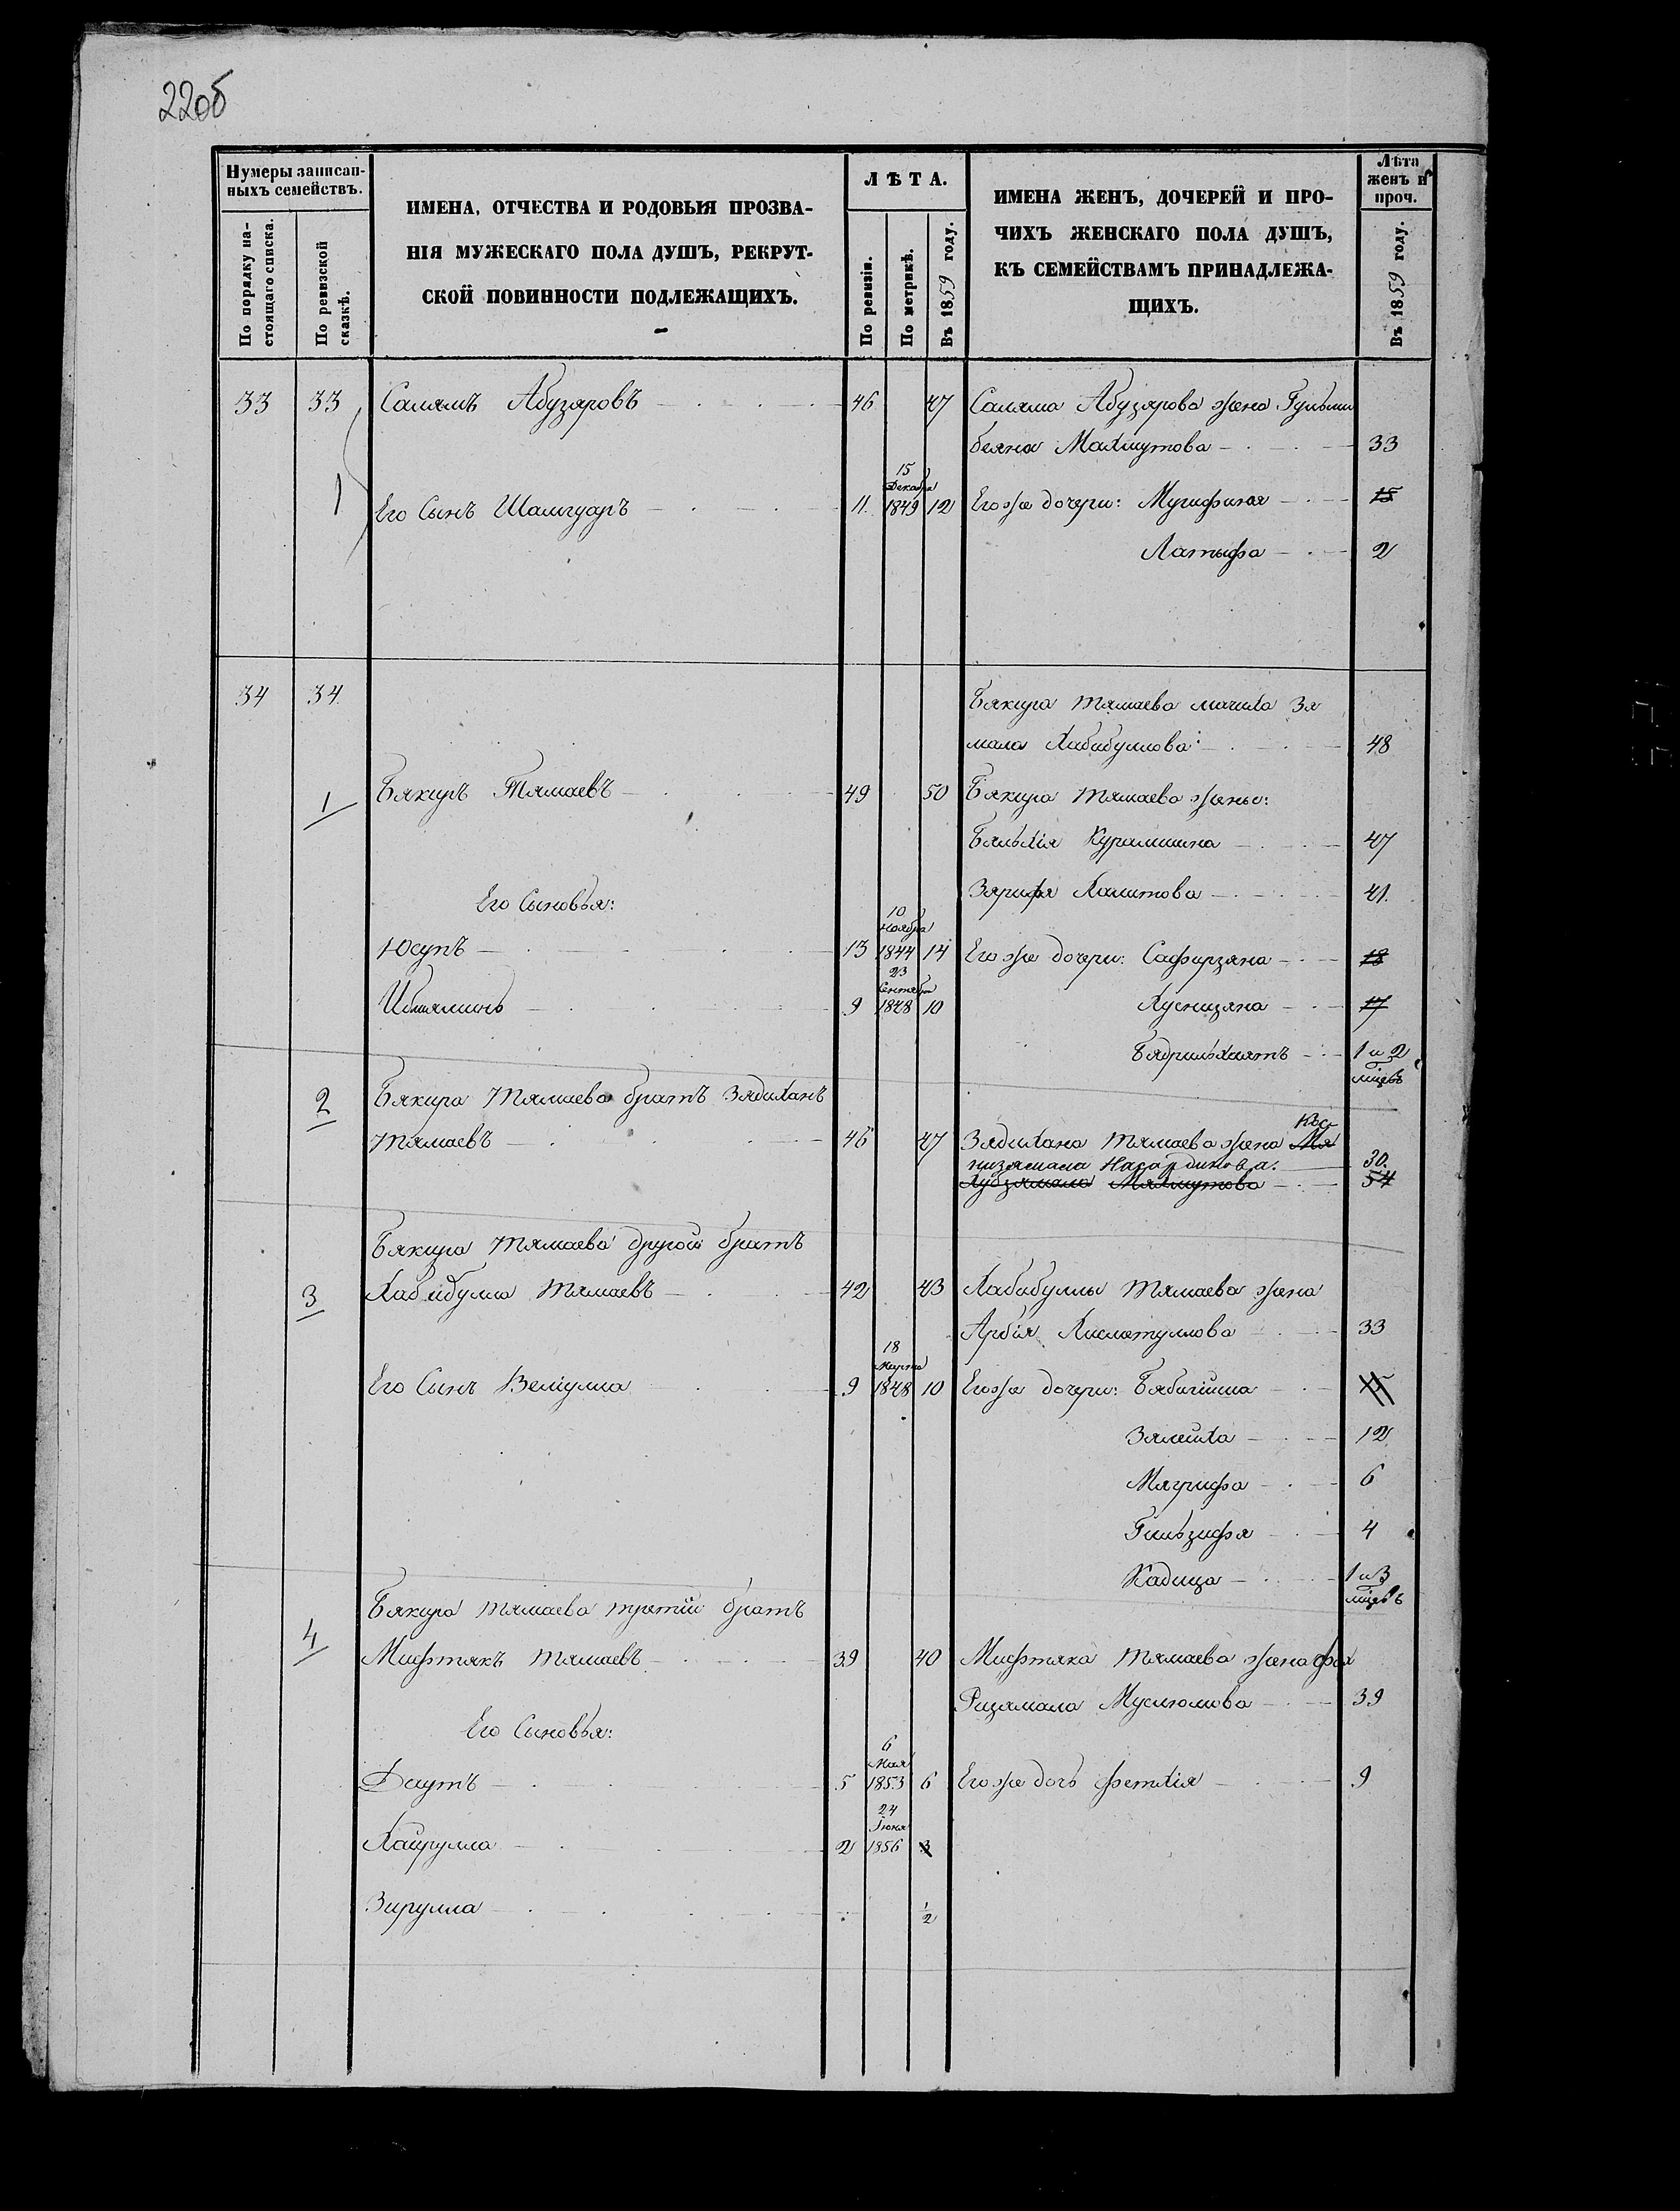 22об
Нумеры записан-
ныхъ семействъ.
По порядку на-
стоящаго списка.
По ревизской
сказкѣ.
ИМЕНА, ОТЧЕСТВА И РОДОВЫЯ ПРОЗВА-
НІЯ МУЖЕСКАГО ПОЛА ДУШЪ, РЕКРУТ-
СКОЙ ПОВИННОСТИ ПОДЛЕЖАЩИХЪ.
ЛѢТА.
По ревизіи.
По метрикѣ.
Въ 1859 году.
ИМЕНА ЖЕНЪ, ДОЧЕРЕЙ И ПРО-
ЧИХЪ ЖЕНСКАГО ПОЛА ДУШЪ,
КЪ СЕМЕЙСТВАМЪ ПРИНАДЛЕЖА-
ЩИХЪ.
Лѣта
женъ и
проч.
Въ 1859 году.
33 33 Салямъ Абузяровъ 46 47 Саляма Абузярова жена Гульми
беяна Махмутова 33
15
Декабря
1 Его Сынъ 11 1849 12 Его же дочери: 15
Латыфа 2
34 34 Бякира Тямаева мачиха Зя
мала Хабибуллова 48
1 Бякиръ Тямаевъ 49 50 Бякира Тямаева жены:
Курамшина 47
Зярифя Халитова 41.
Его Сыновья:
10
Ноября
Юсупъ 13 1844 14 Его же дочери: Сафирзяна 18
23
Сентября
Ибняминъ 9 1848 10 Хуснизяна 17
Бядрильхаятъ 1 и 2
мцевъ
2 Бякира Тямаева братъ Зядиханъ
Тямаевъ 46 47 Зядихана Тямаева жена Хус Мя
низямала Насардинова. 30.
Хубзямала Мяхмутова 34
Бякира Тямаева другой братъ
3 Хабибулла Тямаевъ 42 43 Хабибуллы Тямаева жена
Арбія Хисматуллова 33
18
Марта
Его Сынъ Веліулла 9 1848 10 Его же дочери: 15
Зялиха 12
Мягрифа 6
Гильзифя 4
Кадица 1 и 3
мцевъ
Бякира Тямаева третій братъ
4 Мифтякъ Тямаевъ 39 40 Мифтяка Тямаева жена Фях
Ризямала Муслюмова 39
Его Сыновья:
6
Мая
Даутъ 5 1853 6 Его же дочь Фетхія 9
24
Іюня
Хайрулла 2 1856 3
Зирулла 1/2